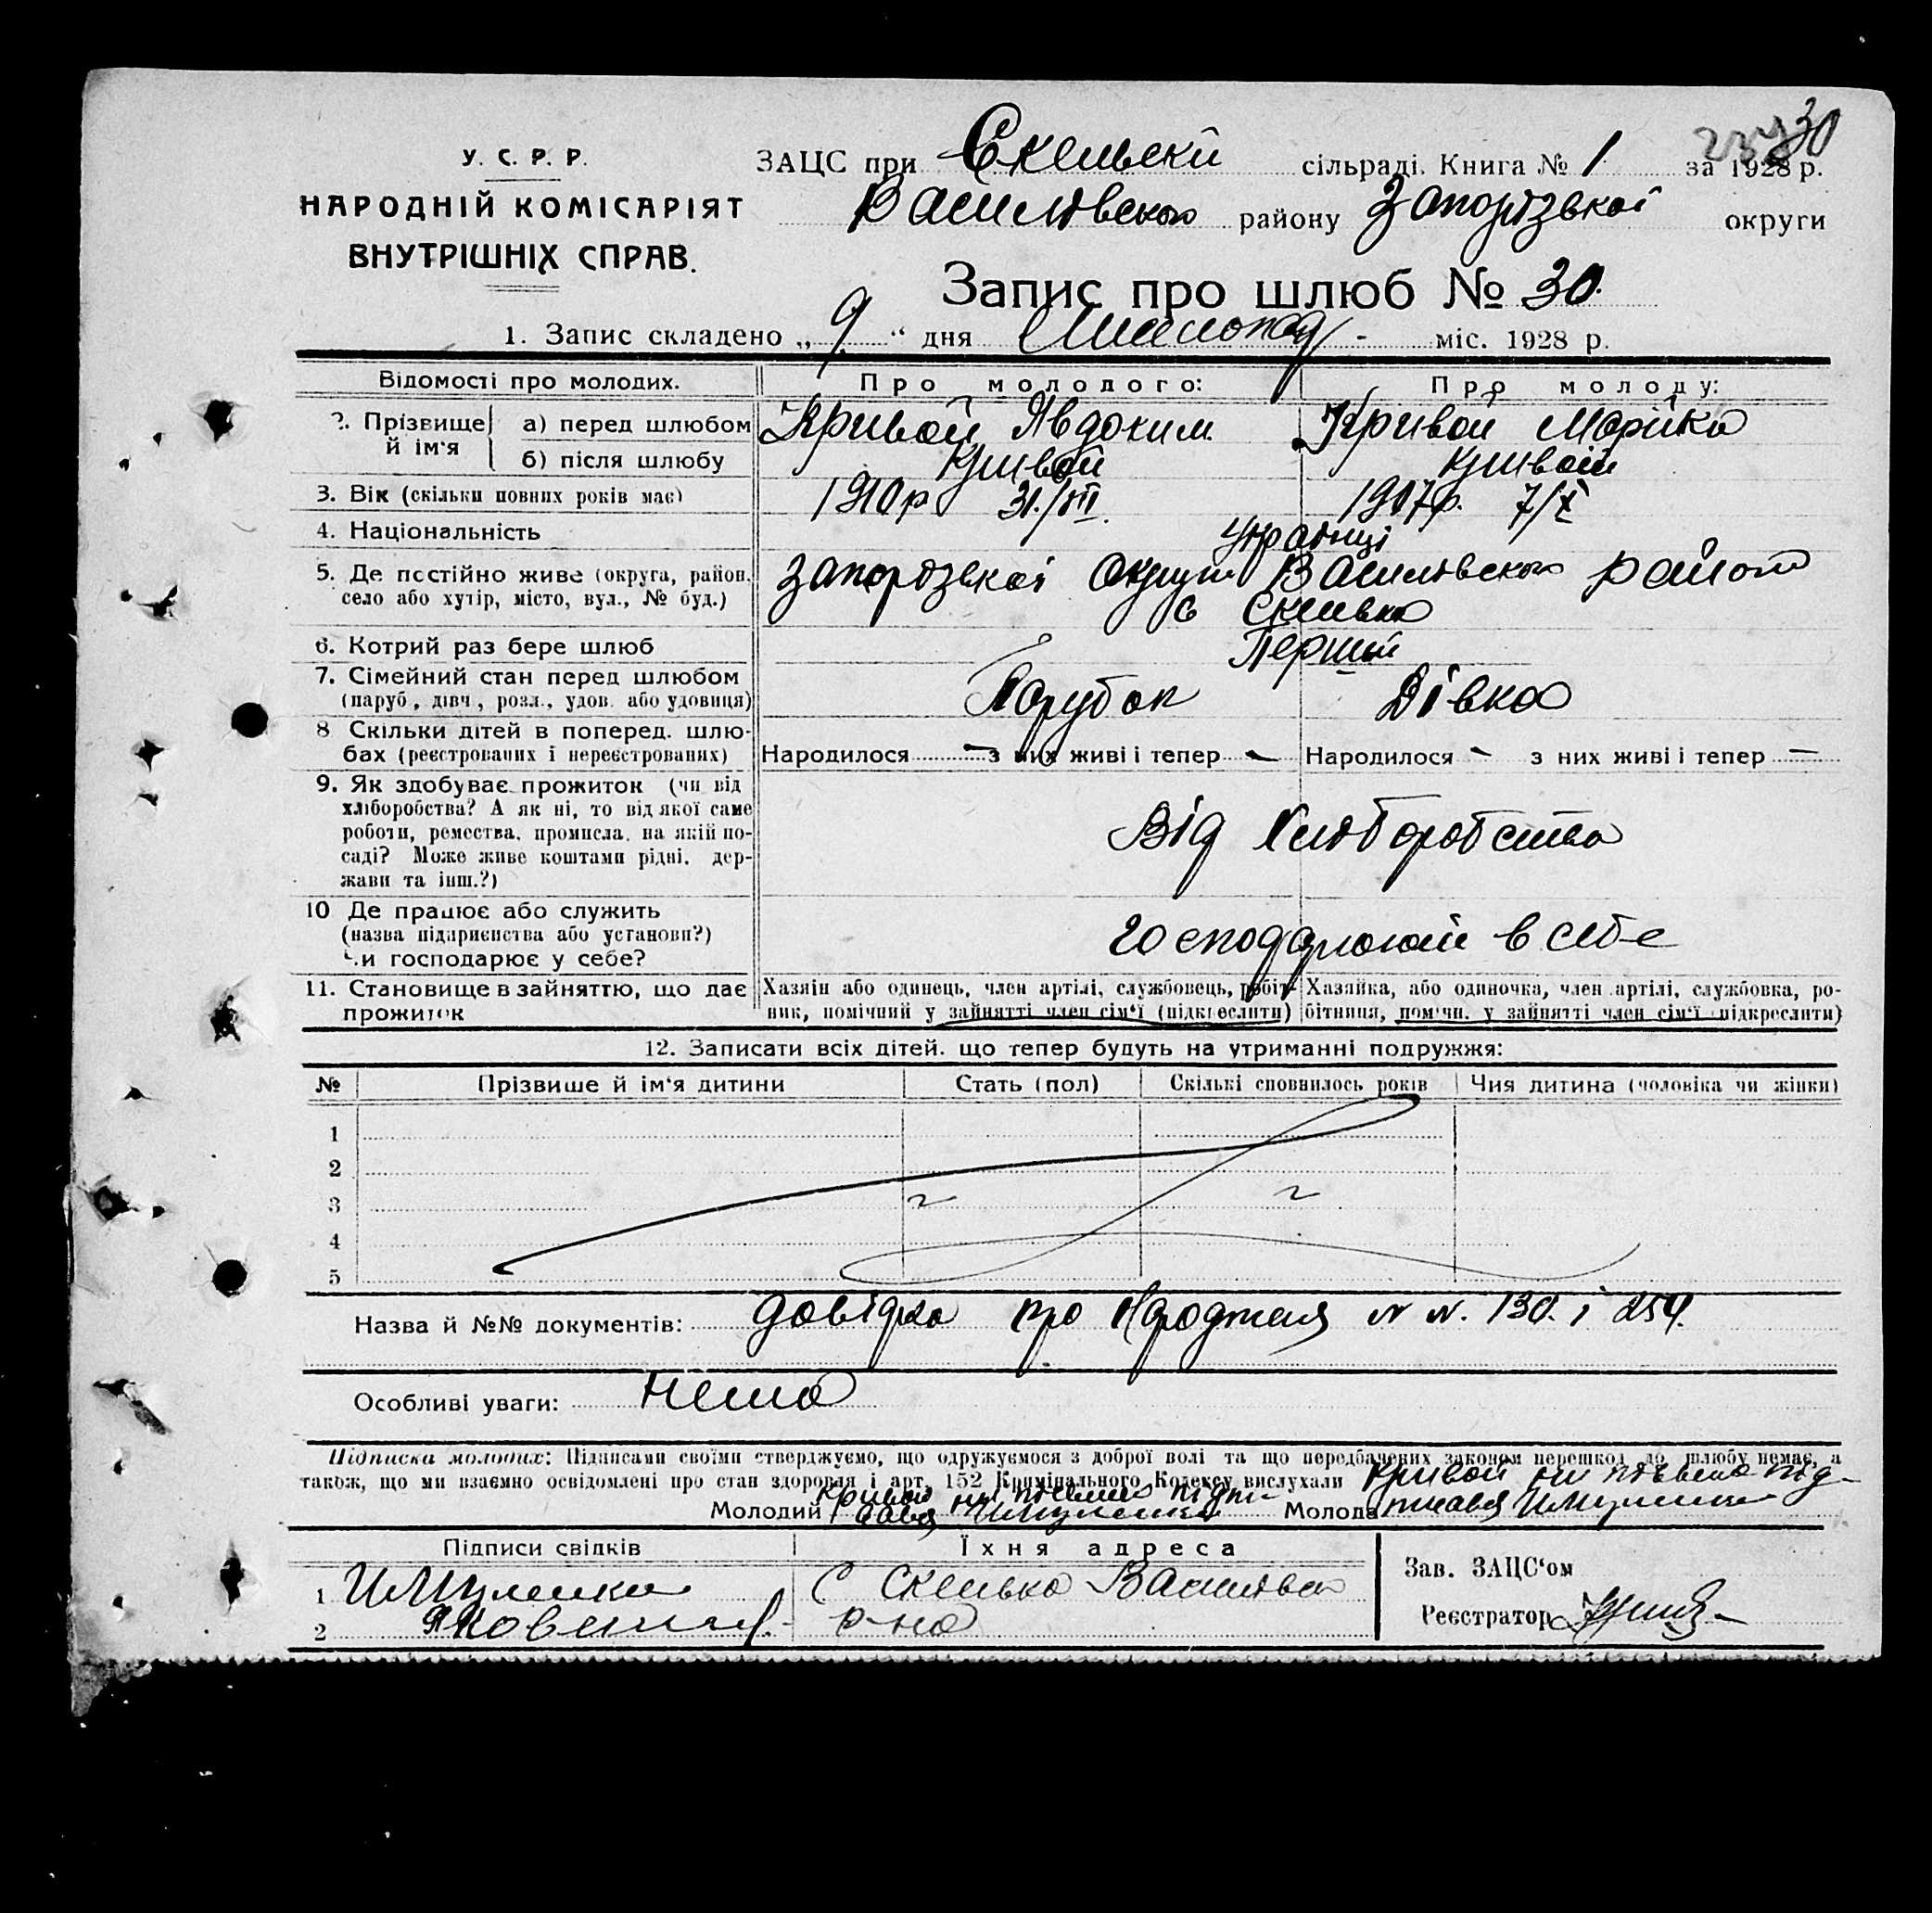 30
У. С. Р. Р.
НАРОДНІЙ КОМІСАРІЯТ
ВНУТРІШНІХ СПРАВ.
ЗАЦС при Скельскій сільраді. Книга № 1 за 1928 р.
Василівского району Запорізької округи
Запис про шлюб № 30.
1. Запис складено „ 9 “ дня Листопад - міс. 1928 р.
Відомості про молодих. Про молодого: Про молоду:
2. Прізвище й ім‘я
а) перед шлюбом Кривой Явдоким Кривой Марійка
б) після шлюбу Кривой Кривой
3. Вік (скільки повних років має) 1910р 31/VII 1907р. 7/X
4. Національність Украінці
5. Де постійно живе (округа, район, Запорізької Округи Василівского району
село або хутір, місто, вул., № буд.) с Скелька
6. Котрий раз бере шлюб Перший
7. Сімейний стан перед шлюбом Парубок Дівка
(паруб., дівч., розл., удов. або удовиця)
8 Скільки дітей в поперед. шлю-
бах (реєстрованих і нереєстрованих) Народилося – з них живі і тепер – Народилося – з них живі і тепер –
9. Як здобуває прожиток (чи від
хліборобства? А як ні, то від якої саме
роботи, ремества, промисла, на якій по- Від Хліборобства
саді? Може живе коштами рідні, дер-
жави та інш.?)
10 Де працює або служить
(назва підприємства або установи?) Господарюють в себе
Чи господарює у себе?
11. Становище в зайняттю, що дає Хазяїн або одинець, член артілі, службовець, робіт- Хазяйка, або одиночка, член артілі, службовка, ро-
прожиток ник, помічний у зайнятті член сім‘ї (підкреслити) бітниця, поміч. у зайнятті член сім‘ї підкреслити)
12. Записати всіх дітей, що тепер будуть на утриманні подружжя:
№ Прізвище й ім‘я дитини Стать (пол) Скількі сповнилось років Чия дитина (чоловіка чи жінки)
1
2
3
4
5
Назва й №№ документів: Довідка про Народженя N N. 130. і 254.
Особливі уваги: Нема
Підписка молодих: Підписами своїми стверджуємо, що одружуємося з доброї волі та що передбачених законом перешкод до шлюбу немає, а
також, що ми взаємно освідомлені про стан здоровля і арт. 152 Кримінального Кодексу вислухали Кривой
Молодий Кривой Молода
Підписи свідків Їхня адреса Зав. ЗАЦС‘ом
1 С Скелька Василівск
2 р-на
Реєстратор